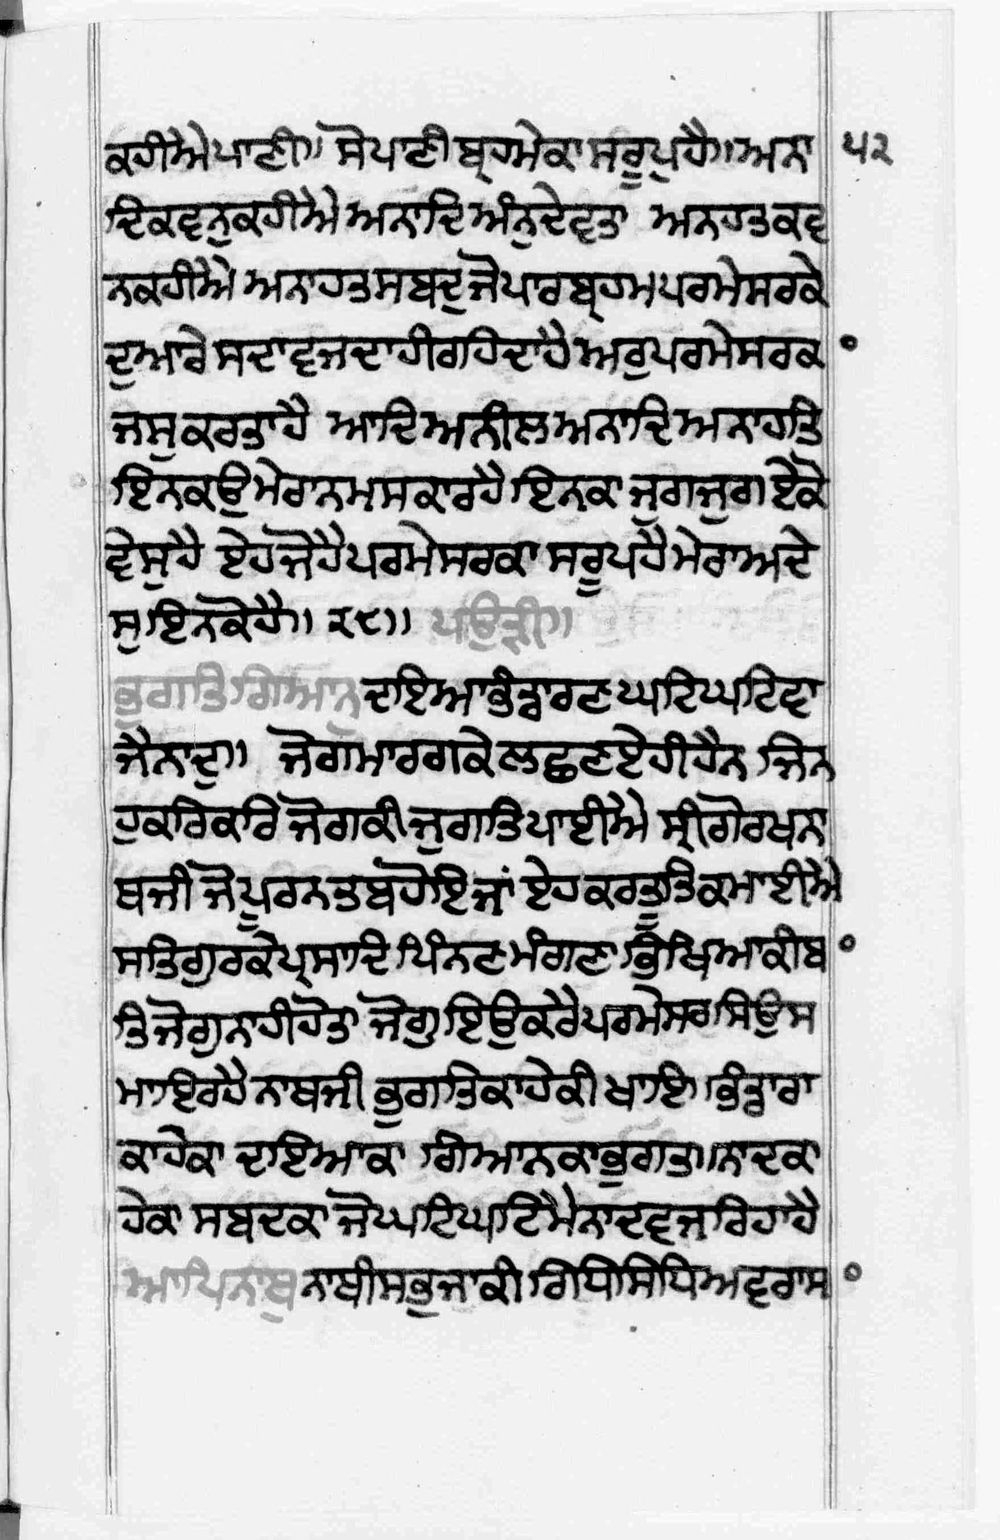 ਕਹੀਐ ਪਾਣੀ॥ ਸੋ ਪਾਣੀ ਬ੍ਰਹਮੇ ਕਾ ਸਰੂਪੁ ਹੈ॥ ਅਨਾ ੫੨
ਦਿ ਕਵਨੁ ਕਹੀਐ ਅਨਾਦਿ ਅੰਨੁ ਦੇਵਤਾ ਅਨਹਤ ਕਵ
ਨ ਕਹੀਐ ਅਨਾਹਤ ਸਬਦੁ ਜੋ ਪਾਰਬ੍ਰਹਮ ਪਰਮੇਸਰ ਕੇ
ਦੁਆਰੇ ਸਦਾ ਵਜਦਾ ਹੀ ਰਹਿਦਾ ਹੈ ਅਰੁ ਪਰਮੇਸਰ ਕ
ਜਸੁ ਕਰਤਾ ਹੈ ਆਦਿ ਅਨੀਲ ਅਨਾਦਿ ਅਨਾਹਤਿ
ਇਨ ਕਉ ਮੇਰਾ ਨਮਸਕਾਰ ਹੈ ਇਨ ਕਾ ਜੁਗ ਜੁਗ ਏਕੋ
ਵੇਸੁ ਹੈ ਏਹ ਜੋ ਹੈ ਪਰਮੇਸਰ ਕਾ ਸਰੂਪ ਹੈ ਮੇਰਾ ਅਦੇ
ਸੁ ਇਨ ਕੋ ਹੈ॥ ੨੯॥ ਪਉੜੀ॥
ਭੁਗਤਿ ਗਿਆਨੁ ਦਇਆ ਭੰਡਾਰਣ ਘਟਿ ਘਟਿ ਵਾ
ਜੈ ਨਾਦੁ॥ ਜੋਗ ਮਾਰਗ ਕੇ ਲਛਣ ਏਹੀ ਹੈਨ ਜਿਨ
ਹੁ ਕਰਿ ਕਰਿ ਜੋਗ ਕੀ ਜੁਗਤਿ ਪਾਈਐ ਸ੍ਰੀ ਗੋਰਖ ਨਾ
ਥ ਜੀ ਜੋ ਪੂਰਨ ਤਬ ਹੋਇ ਜਾਂ ਏਹ ਕਰਤੂਤਿ ਕਮਾਈਐ
ਸਤਿਗੁਰ ਕੇ ਪ੍ਰਸਾਦਿ ਪਿੰਨਣ ਮੰਗਣਾ ਭਿਖਿਆ ਕੀ ਬ
ਤਿ ਜੋਗੁ ਨਾਹੀ ਹੋਤਾ ਜੋਗੁ ਇਉ ਕਰੈ ਪਰਮੇਸਰ ਸਿਉ ਸ
ਮਾਇ ਰਹੈ ਨਾਥ ਜੀ ਭੁਗਤਿ ਕਾਹੇ ਕੀ ਖਾਇ ਭੰਡਾਰਾ
ਕਾਹੇ ਕਾ ਦਇਆ ਕਾ ਗਿਆਨ ਕਾ ਭੁਗਤਾ॥ ਨਾਦ ਕਾ
ਹੇ ਕਾ ਸਬਦ ਕਾ ਜੋ ਘਟਿ ਘਟਿ ਮੈ ਨਾਦ ਵਜ ਰਿਹਾ ਹੈ
ਆਪਿ ਨਾਥੁ ਨਾਥੀ ਸਭੁ ਜਾ ਕੀ ਰਿਧਿ ਸਿਧਿ ਅਵਰਾ ਸ